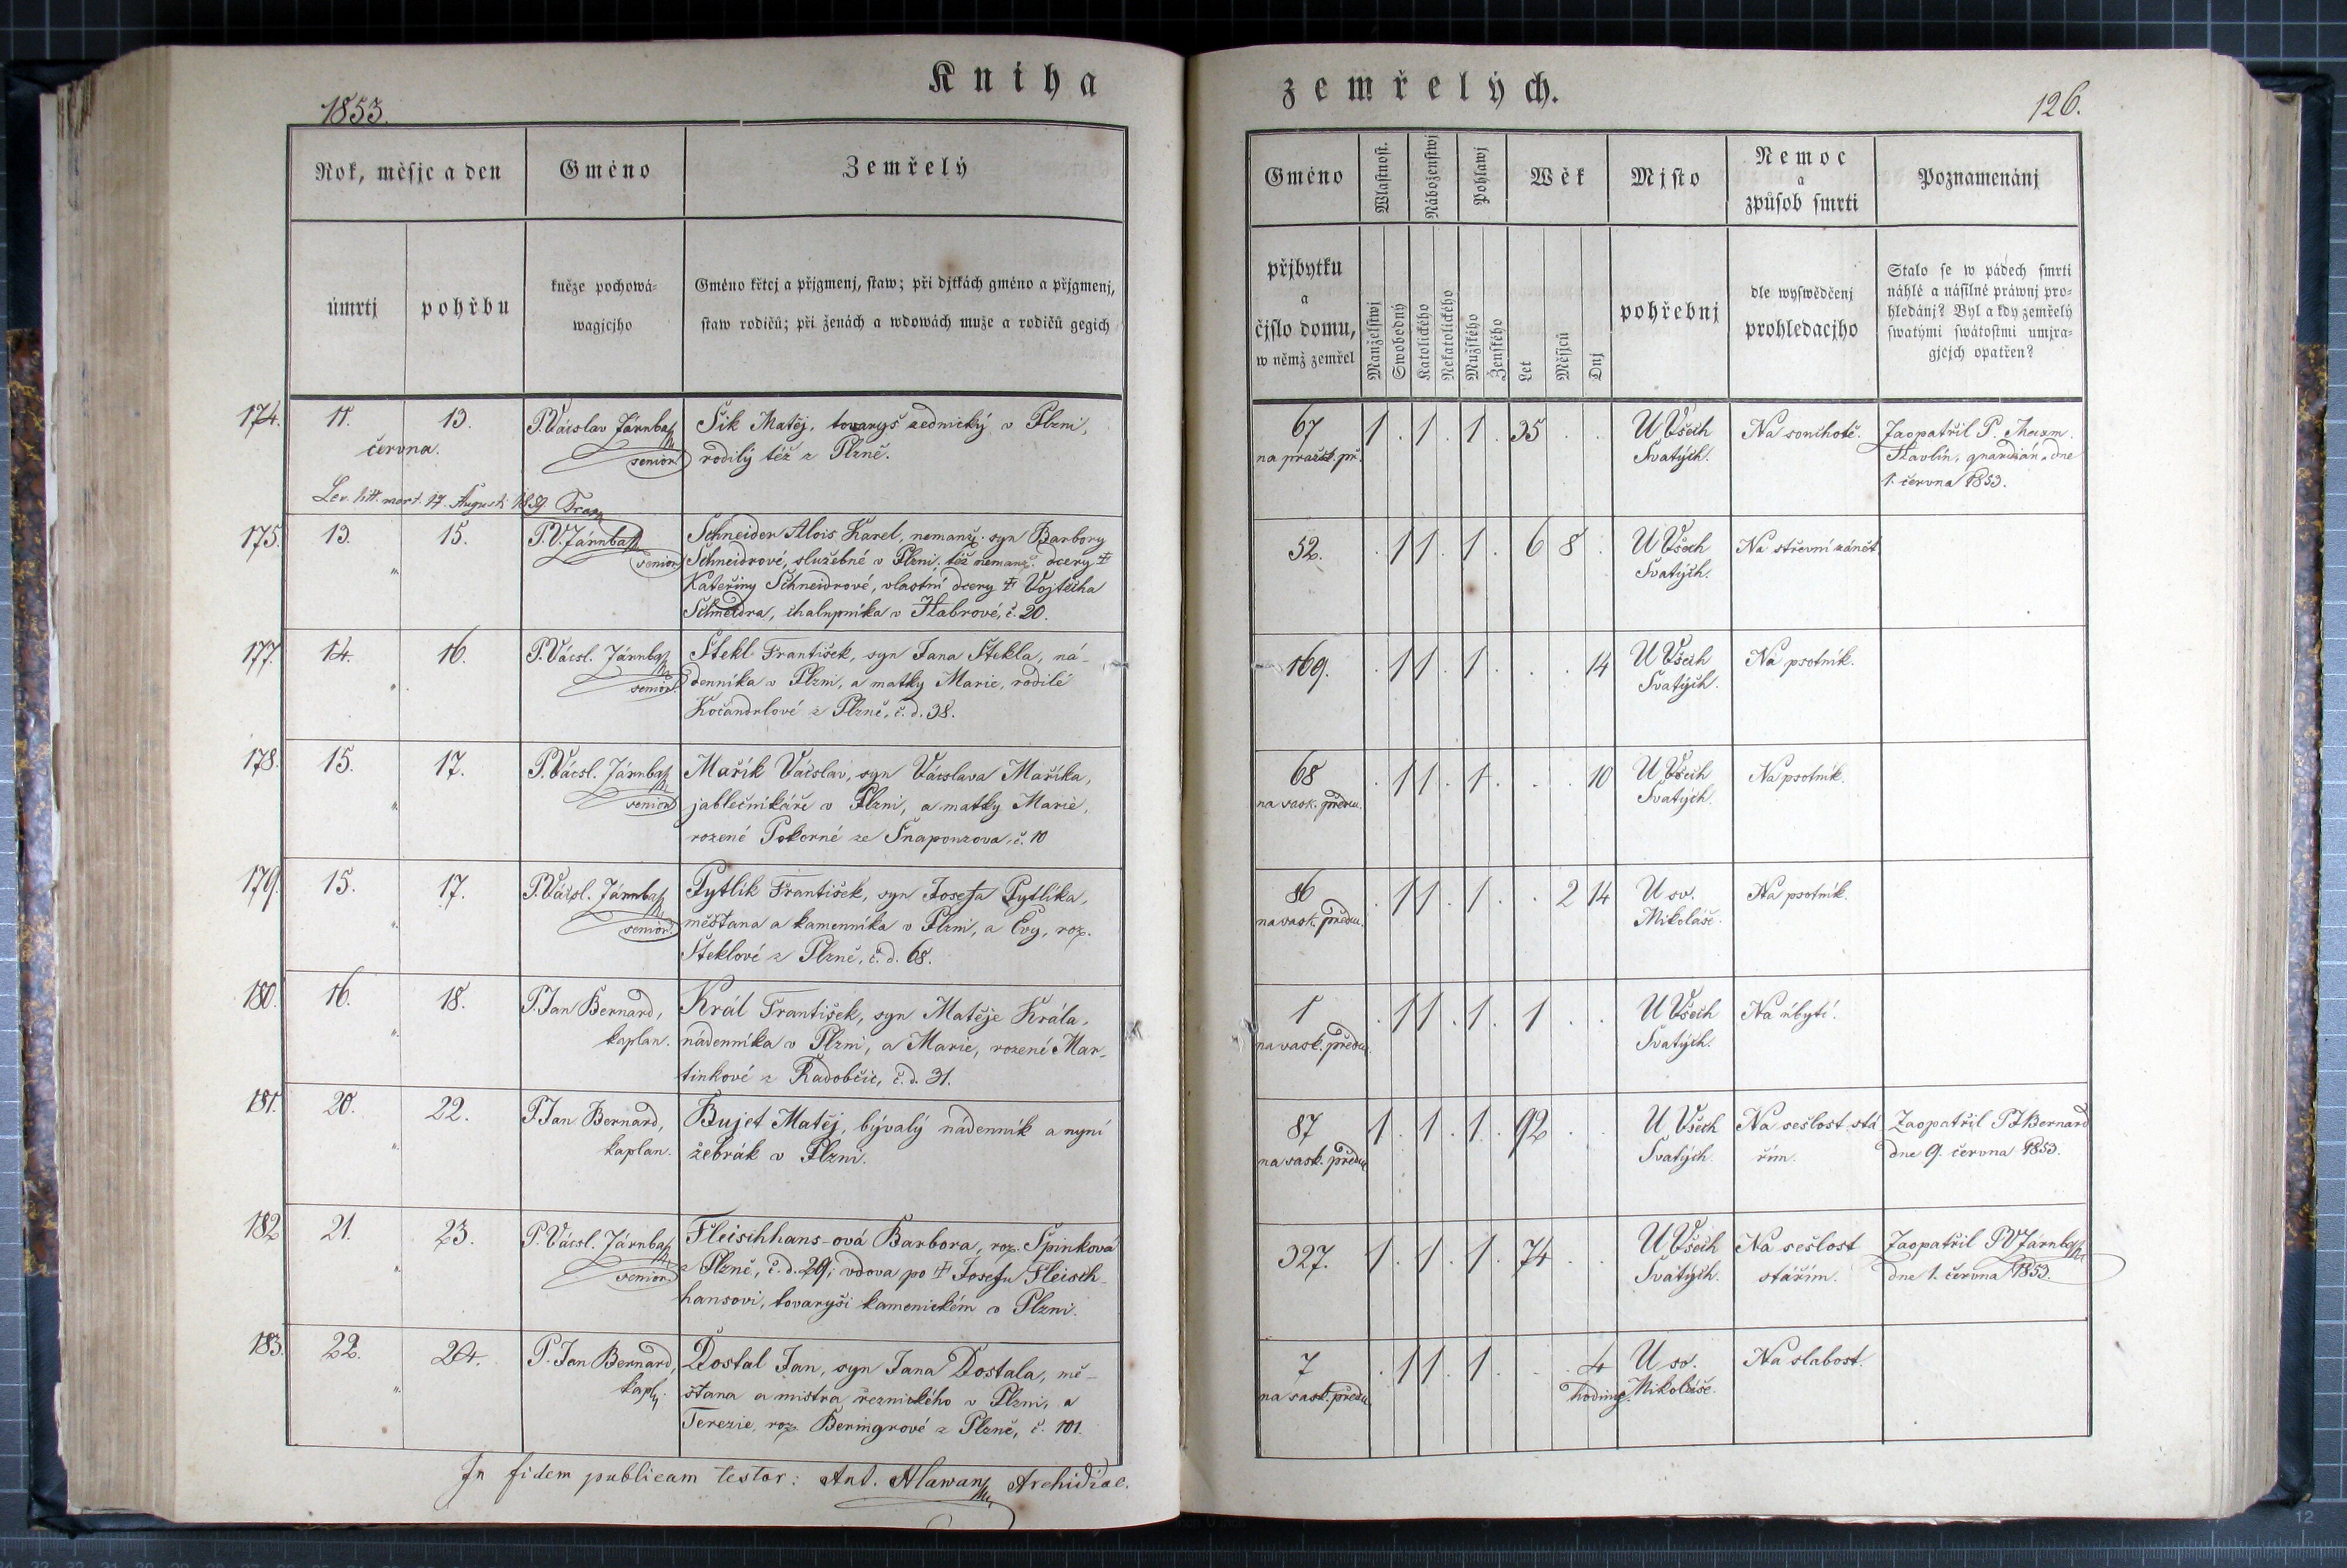 Kniha
1853.
Rok, měsjc a den
Gméno
Zemřelý
úmrtj
pohřbu
kněze pochowá=
wagjcjho
Gméno křtej a přjgmenj, staw; při djtkách gméno a přjgmenj,
staw rodičů; při ženách a wdowách muže a rodičů gegich
174. 11. 13. P. Vácslav Járnba senior
června.
Sik Matěj, tovaryš zednický v Plzni,
rodilý též z Plzně.
Lev. litt. mort. 17. Augusti 1859.
175. 13. 15. P. V. Járnba senior
"
Schneider Alois Karel, nemanž. syn Barbory
Schneidrové, služebné v Plzni, též nemanž. dcery ‡
Kateřiny Schneidrové, vlastní dcery ‡ Vojtěcha
Schneidra, chalupníka v Habrové, č. 20.
177. 14. 16. P. Vácsl. Járnba senior.
"
Stekl František, syn Jana Stekla, ná-
denníka v Plzni, a matky Marie, rodilé
Kočandrlové z Plzně, č. d. 38.
178. 15. 17. P. Vácsl. Járnba senior
"
Mařík Vácslav, syn Vácslava Maříka,
jablečnikáře v Plzni, a matky Marie,
rozené Pokorné ze Snaponzova, č. 10
179. 15. 17. P. Vácsl. Járnba senior
"
Pytlík František, syn Josefa Pytlíka,
měšťana a kamenníka v Plzni, a Evy, roz.
Šteklové z Plzně, č. d. 68.
180. 16. 18. P. Jan Bernard,
kaplan.
"
Král František, syn Matěje Krála,
nádenníka v Plzni, a Marie, rozené Mar-
tinkové z Radobčic, č. d. 31.
181. 20. 22. P. Jan Bernard,
kaplan.
"
Bujet Matěj, bývalý nádenník a nyní
žebrák v Plzni.
182 21. 23. P. Vácsl. Járnba senior
"
Fleischhans-ová Barbora, roz. Spinková
z Plzně, č. d. 29; vdova po ‡ Josefu Fleisch-
hansovi, tovaryši kamenickém v Plzni.
183. 22. 24. P. Jan Bernard,
kapl.
"
Dostal Jan, syn Jana Dostala, mě-
šťana a mistra řeznického v Plzni, a
Terezie, roz. Beringrové z Plzně, č. 101.
In fidem publicam testor: Ant. Hlawan Archidiac.
zemřelých.
126.
Gméno
Wlastnost.
Náboženstwj
Pohlawj
Wěk
Mjsto
Nemoc
a
způsob smrti
Poznamenánj
přjbytku
a
čjslo domu,
w němž zemřel
Manželstwj
Swobodný
Katolického
Nekatolického
Mužského
Ženského
Let
Měsjců
Dnj
pohřebnj
dle wyswědčenj
prohledacjho
Stalo se w pádech smrti
náhlé a násilné práwnj pro=
hledánj? Byl a kdy zemřelý
swatými swátostmi umjra=
gjcjch opatřen?
67 1 . 1 . 1 . 35 . . U Všech Na souchotě. Zaopatřil P.
na pražsk. př. Svatých. Havlín, quardián, dne
1. června 1853.
52. . 1 1 . 1 . 6 8 . U Všech Na střevní zánět
Svatých.
169. . 1 1 . 1 . . . 14 U Všech Na psotník.
Svatých.
68 . 1 1 . 1 . . . 10 U Všech Na psotník.
na sask. předm. Svatých.
86 . 1 1 . 1 . . 2 14 U sv. Na psotník.
na sask. předm. Mikoláše.
1 . 1 1 . 1 . 1 . . U Všech Na úbytí.
na sask. předm. Svatých.
87 1 . 1 . 1 . 92 . . U Všech Na sešlost stá Zaopatřil P J Bernard
na sask. předm. Svatých. řím. dne 9. června 1853.
327. 1 . 1 . 1 . 74 . . U Všech Na sešlost Zaopatřil P V Járnba
Svatých. stářím. dne 1. června 1853.
7 . 1 1 . 1 . . . 4 U sv. Na slabost.
na sask. předm. hodiny. Mikoláše.